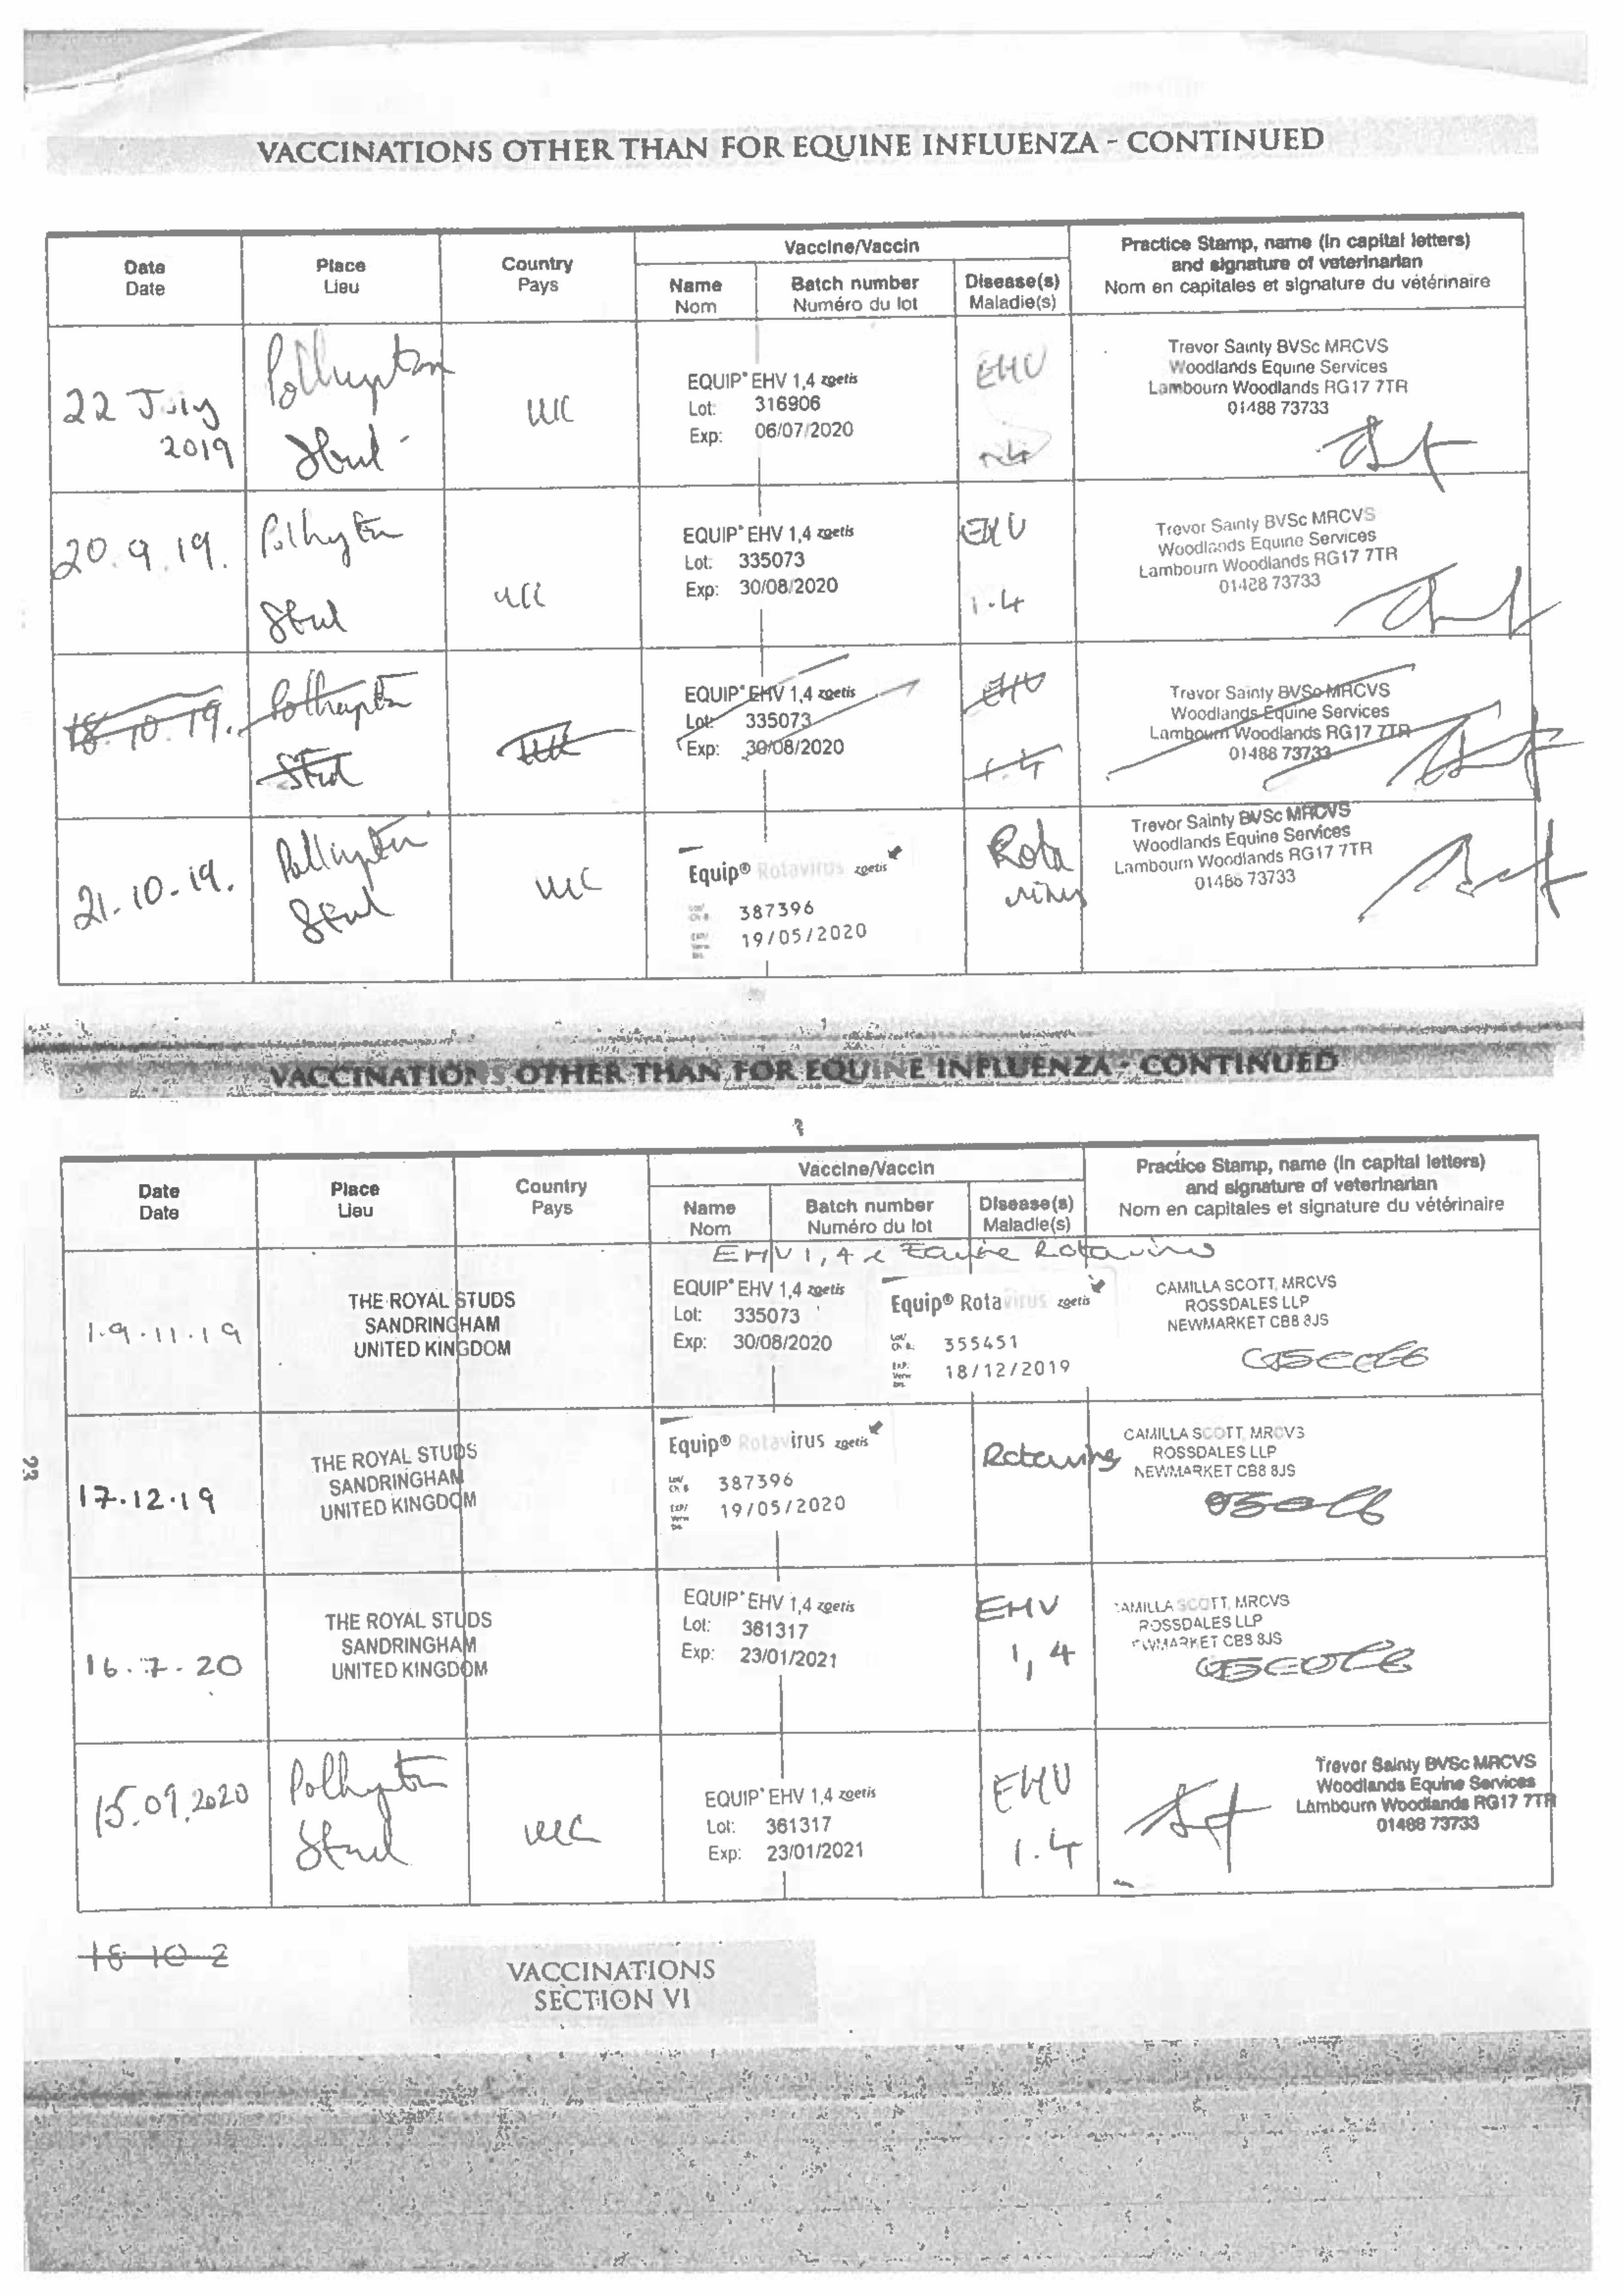 VACCINATIONS OTHER THAN FOR EQUINE INFLUENZA - CONTINUED
Date
Date
Place
Lieu
Country
Pays
Vaccine/Vaccin
Name
Nom
Batch number
Numéro du lot
Disease(s)
Maladie(s)
Practice Stamp, name (in capital letters)
and signature of veterinarian
Nom en capitales et signature du vétérinaire
22 July
2019
Polhampton
Stud
UK
EQUIP® EHV 1,4 zoetis
Lot: 316906
Exp: 06/07/2020
EHV
1.4
Trevor Sainty BVSc MRCVS
Woodlands Equine Services
Lambourn Woodlands RG17 7TR
01488 73733
20.9.19.
Polhampton
Stud
UK
EQUIP® EHV 1,4 zoetis
Lot: 335073
Exp: 30/08/2020
EHV
1.4
Trevor Sainty BVSc MRCVS
Woodlands Equine Services
Lambourn Woodlands RG17 7TR
01488 73733
18.10.19.
Polhampton
Stud
UK
EQUIP® EHV 1,4 zoetis
Lot: 335073
Exp: 30/08/2020
EHV
1.4
Trevor Sainty BVSc MRCVS
Woodlands Equine Services
Lambourn Woodlands RG17 7TR
01488 73733
21-10-19.
Polhampton
Stud
UK
Equip® Rotavirus zoetis
387396
19/05/2020
Rota
virus
Trevor Sainty BVSc MRCVS
Woodlands Equine Services
Lambourn Woodlands RG17 7TR
01488 73733
VACCINATIONS OTHER THAN FOR EQUINE INFLUENZA - CONTINUED
Date
Date
Place
Lieu
Country
Pays
Vaccine/Vaccin
Name
Nom
Batch number
Numéro du lot
Disease(s)
Maladie(s)
Practice Stamp, name (in capital letters)
and signature of veterinarian
Nom en capitales et signature du vétérinaire
EHV 1,4 & Equine Rotavirus
19.11.19
THE ROYAL STUDS
SANDRINGHAM
UNITED KINGDOM
EQUIP® EHV 1,4 zoetis
Lot: 335073
Exp: 30/08/2020
Equip® Rotavirus zoetis
355451
18/12/2019
CAMILLA SCOTT, MRCVS
ROSSDALES LLP
NEWMARKET CB8 8JS
23
17.12.19
THE ROYAL STUDS
SANDRINGHAM
UNITED KINGDOM
Equip® Rotavirus zoetis
387396
19/05/2020
Rotavirus
CAMILLA SCOTT, MRCVS
ROSSDALES LLP
NEWMARKET CB8 8JS
16.7.20
THE ROYAL STUDS
SANDRINGHAM
UNITED KINGDOM
EQUIP® EHV 1,4 zoetis
Lot: 361317
Exp: 23/01/2021
EHV
1,4
CAMILLA SCOTT, MRCVS
ROSSDALES LLP
NEWMARKET CB8 8JS
15.09.2020
Polhampton
Stud
UK
EQUIP® EHV 1,4 zoetis
Lot: 361317
Exp: 23/01/2021
EHV
1.4
Trevor Sainty BVSc MRCVS
Woodlands Equine Services
Lambourn Woodlands RG17 7TR
01488 73733
18-10-2
VACCINATIONS
SECTION VI